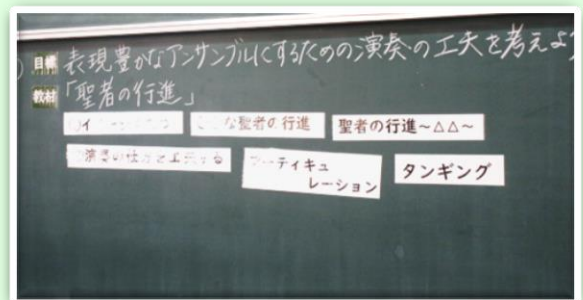 目標 表現豊かなアンサンブルにするための演奏の工夫を考えよ
教材 「聖者の行進」
な聖者の行進 聖者の行進～△△～
演奏の仕方を工夫する
ーティキュ
レーション
タンギング